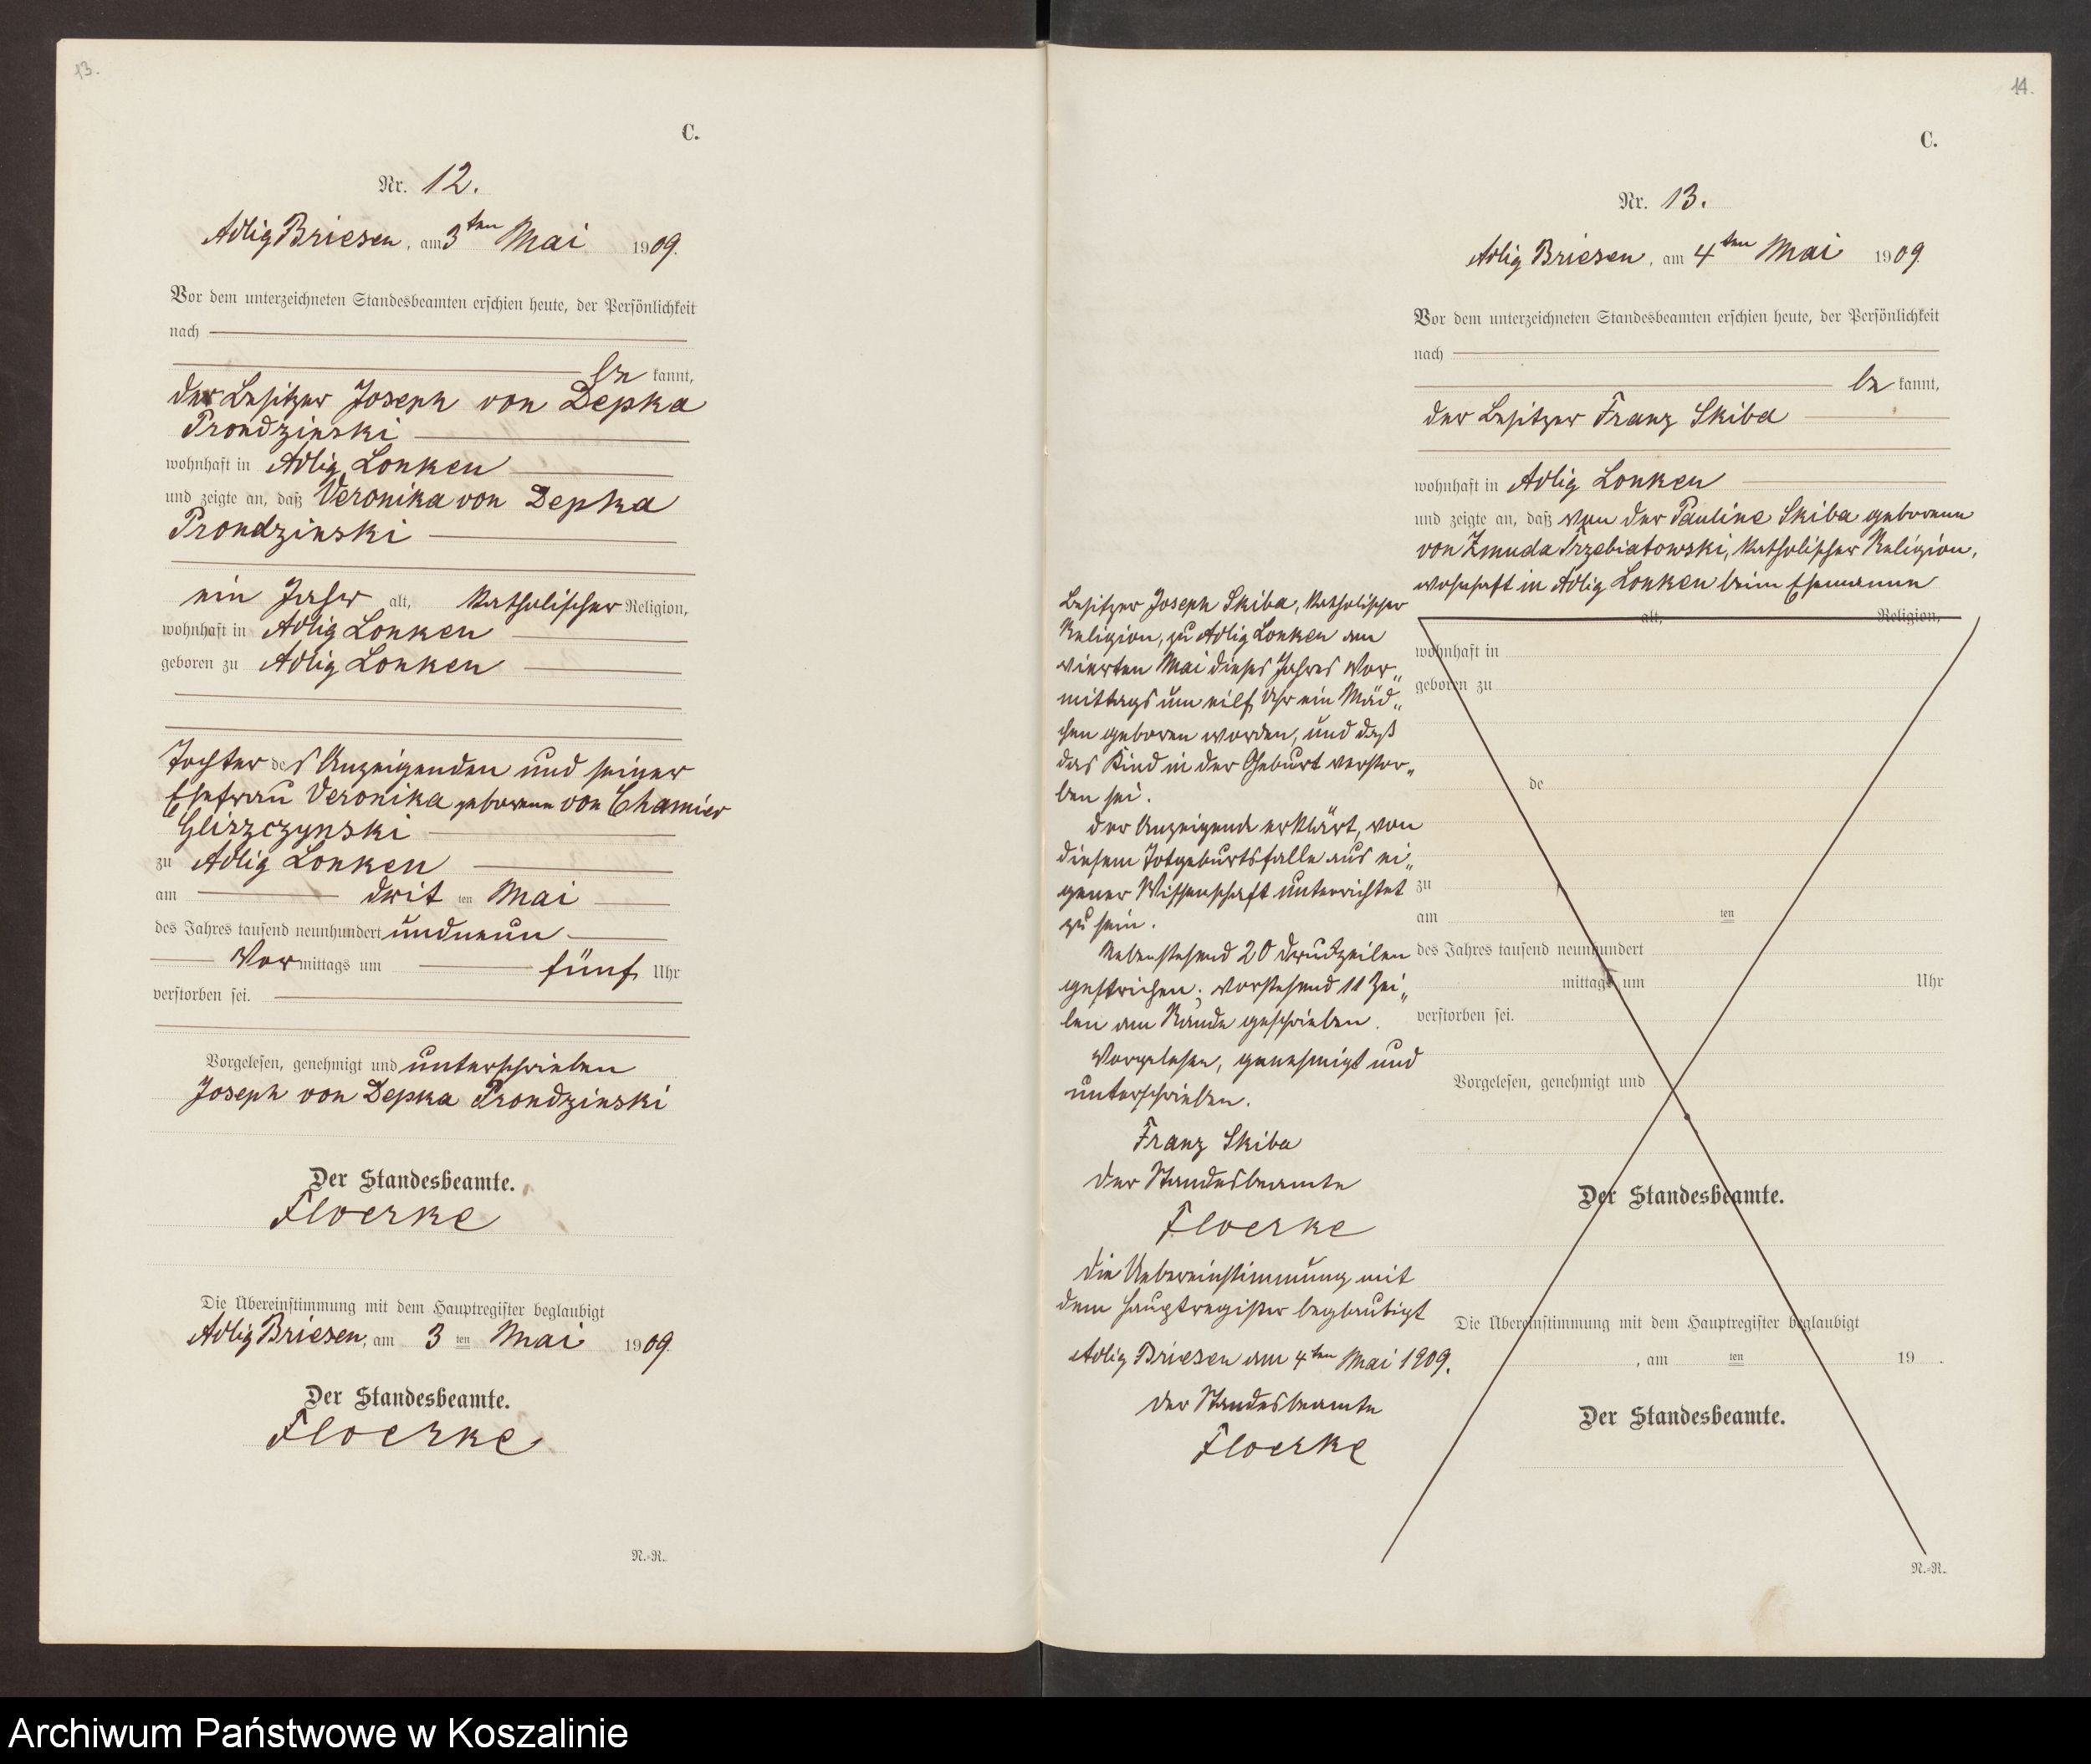 13.
C.
Nr. 12.
Adlig Briesen, am 3ten Mai 1909.
Vor dem unterzeichneten Standesbeamten erschien heute, der Persönlichkeit
nach
be kannt,
der Besitzer Joseph von Depka
Prondzinski
wohnhaft in Adlig Lonken
und zeigte an, daß Veronika von Depka
Prondzinski
ein Jahr alt, katholischer Religion,
wohnhaft in Adlig Lonken
geboren zu Adlig Lonken
Tochter des Anzeigenden und seiner
Ehefrau Veronika geborene von Chamier
Gliszczynski
zu Adlig Lonken
am drit ten Mai
des Jahres tausend neunhundert undneun
Vormittags um fünf Uhr
verstorben sei.
Vorgelesen, genehmigt und unterschrieben
Joseph von Depka Prondzinski
Der Standesbeamte.
Floerke
Die Übereinstimmung mit dem Hauptregister beglaubigt
Adlig Briesen, am 3 ten Mai 1909.
Der Standesbeamte.
Floerke
N.-R.
14.
C.
Nr. 13.
Adlig Briesen, am 4ten Mai 1909
Vor dem unterzeichneten Standesbeamten erschien heute, der Persönlichkeit
nach
be kannt,
der Besitzer Franz Skiba
wohnhaft in Adlig Lonken
und zeigte an, daß von der Pauline Skiba geborene
von Zmuda Trzebiatowski, katholischer Religion,
wohnhaft in Adlig Lonken beim Ehemanne
Besitzer Joseph Skiba, katholischer
Religion, zu Adlig Lonken am
vierten Mai dieses Jahres Vor„
mittags um eilf Uhr ein Mäd„
chen geboren worden, und daß
das Kind in der Geburt verstor„
ben sei.
Der Anzeigende erklärt, von
diesem Totgeburtsfalle aus ei„
gener Wissenschaft unterrichtet
zu sein.
Nebenstehend 20 Druckzeilen
gestrichen; vorstehend 11 Zei„
len am Rande geschrieben.
Vorgelesen, genehmigt und
unterschrieben.
Franz Skiba
Der Standesbeamte
Floerke
Die Uebereinstimmung mit
dem Hauptregister beglaubigt
Adlig Briesen am 4ten Mai 1909.
Der Standesbeamte
Floerke
alt, Religion,
wohnhaft in
geboren zu
de
zu
am ten
des Jahres tausend neunhundert
mittags um Uhr
verstorben sei.
Vorgelesen, genehmigt und
Der Standesbeamte.
Die Übereinstimmung mit dem Hauptregister beglaubigt
, am ten 19 .
Der Standesbeamte.
N.-R.
Archiwum Państwowe w Koszalinie